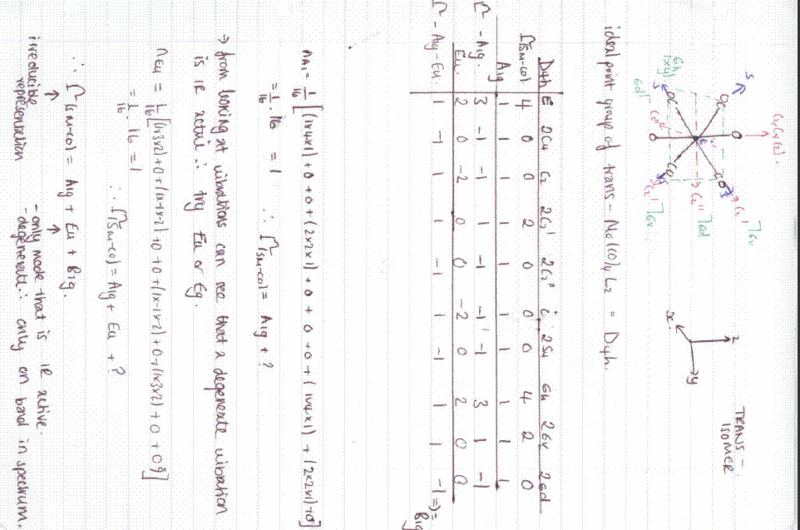 TRANS -
ISOMER
C4 C2 (z).
z
y
x
ideal point group of trans - Mo(CO)4 L2 = D4h.
D4h E 2C4 C2 2C2' 2C2'' i 2S4 σh 2σv 2σd
Γ(SM-CO) 4 0 0 2 0 0 0 4 2 0
A1g 1 1 1 1 1 1 1 1 1 1
Γ - A1g. 3 -1 -1 1 -1 -1 -1 3 1 -1
Eu. 2 0 -2 0 0 -2 0 2 0 0
Γ - A1g - Eu. 1 -1 1 1 -1 1 -1 1 1 -1 => = B1g
nA1 = 1/16 [(1x4x1) + 0 + 0 + (2x2x1) + 0 + 0 + 0 + (1x4x1) + (2x2x1) + 0]
= 1/16 . 16 = 1 ∴ Γ(SM-CO) = A1g + ?
→ from looking at vibrations can see that a degenerate vibration
is IR active ∴ try Eu or Eg.
nEu = 1/16 [(1x3x2) + 0 + (1x-1x-2) + 0 + 0 + (1x-1x-2) + 0 + (1x3x2) + 0 + 0]
= 1/16 . 16 = 1 ∴ Γ(SM-CO) = A1g + Eu + ?
∴ Γ(SM-CO) = A1g + Eu + B1g.
irreducible representation
- only mode that is IR active
- degenerate ∴ only on band in spectrum.